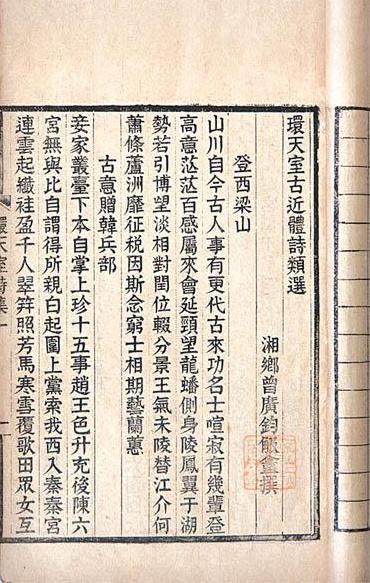 環天室古近體詩類選
湘鄉曾廣鈞㕁盦撰
登西梁山
山川自今古人事有更代古來功名士喧寂有幾輩登
高意茫茫百感屬來會延頸望龍蟠側身陵鳳翼于湖
勢若引博望淡相對閏位輟分景王氣未陵替江介何
蕭條蘆洲靡征税因斯念窮士相期藝蘭蕙
古意贈韓兵部
妾家叢臺下本自掌上珍十五事趙王色升充後陳六
宮無與比自謂得所親白起圍上黨索我西入秦秦宮
連雲起纖袿盈千人翠笄照芳馬寒雪覆歌田眾女互
環天室詩集一
一